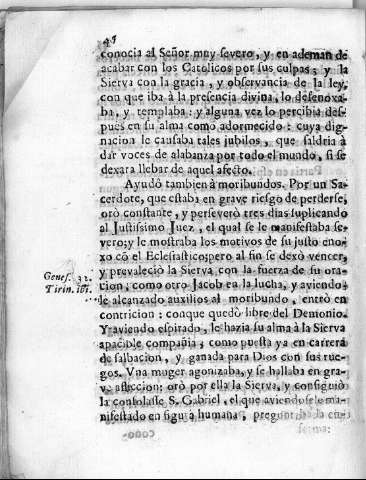 conocia al Señor muy severo, y en ademan de
acabar con los Catolicos por sus culpas; y la
Sierva con la gracia, y observancia de la ley,
con que iba à la presencia divina, lo desenoxa-
ba, y templaba: y alguna vez lo percibia des-
pues en su alma como adormecido: cuya dig-
nacion le causaba tales jubilos, que saldria à
dar voces de alabanza por todo el mundo, si se
dexara llebar de aquel afecto.
Ayudò tambien à moribundos. Por un Sa-
cerdote, que estaba en grave riesgo de perderse,
orò constante, y perseverò tres dias suplicando
al Justissimo Juez, el qual se le manifestaba se-
vero; y le mostraba los motivos de su justo eno-
xo cõ el Eclesiastico; pero al fin se dexò vencer,
Genes. 32.
y prevaleciò la Sierva con la fuerza de su ora-
Tirin. ibi.
cion, como otro Jacob en la lucha, y aviendo-
le alcanzado auxilios al moribundo, entrò en
contricion: conque quedò libre del Demonio.
Y aviendo espirado, le hazia su alma à la Sierva
apacible compañia; como puesta ya en carrera
de salbacion, y ganada para Dios con sus rue-
gos. Vna muger agonizaba, y se hallaba en gra-
ve afliccion: orò por ella la Sierva, y consiguiò
la consolasse S. Gabriel, el que aviendosele ma-
nifestado en figura humana,